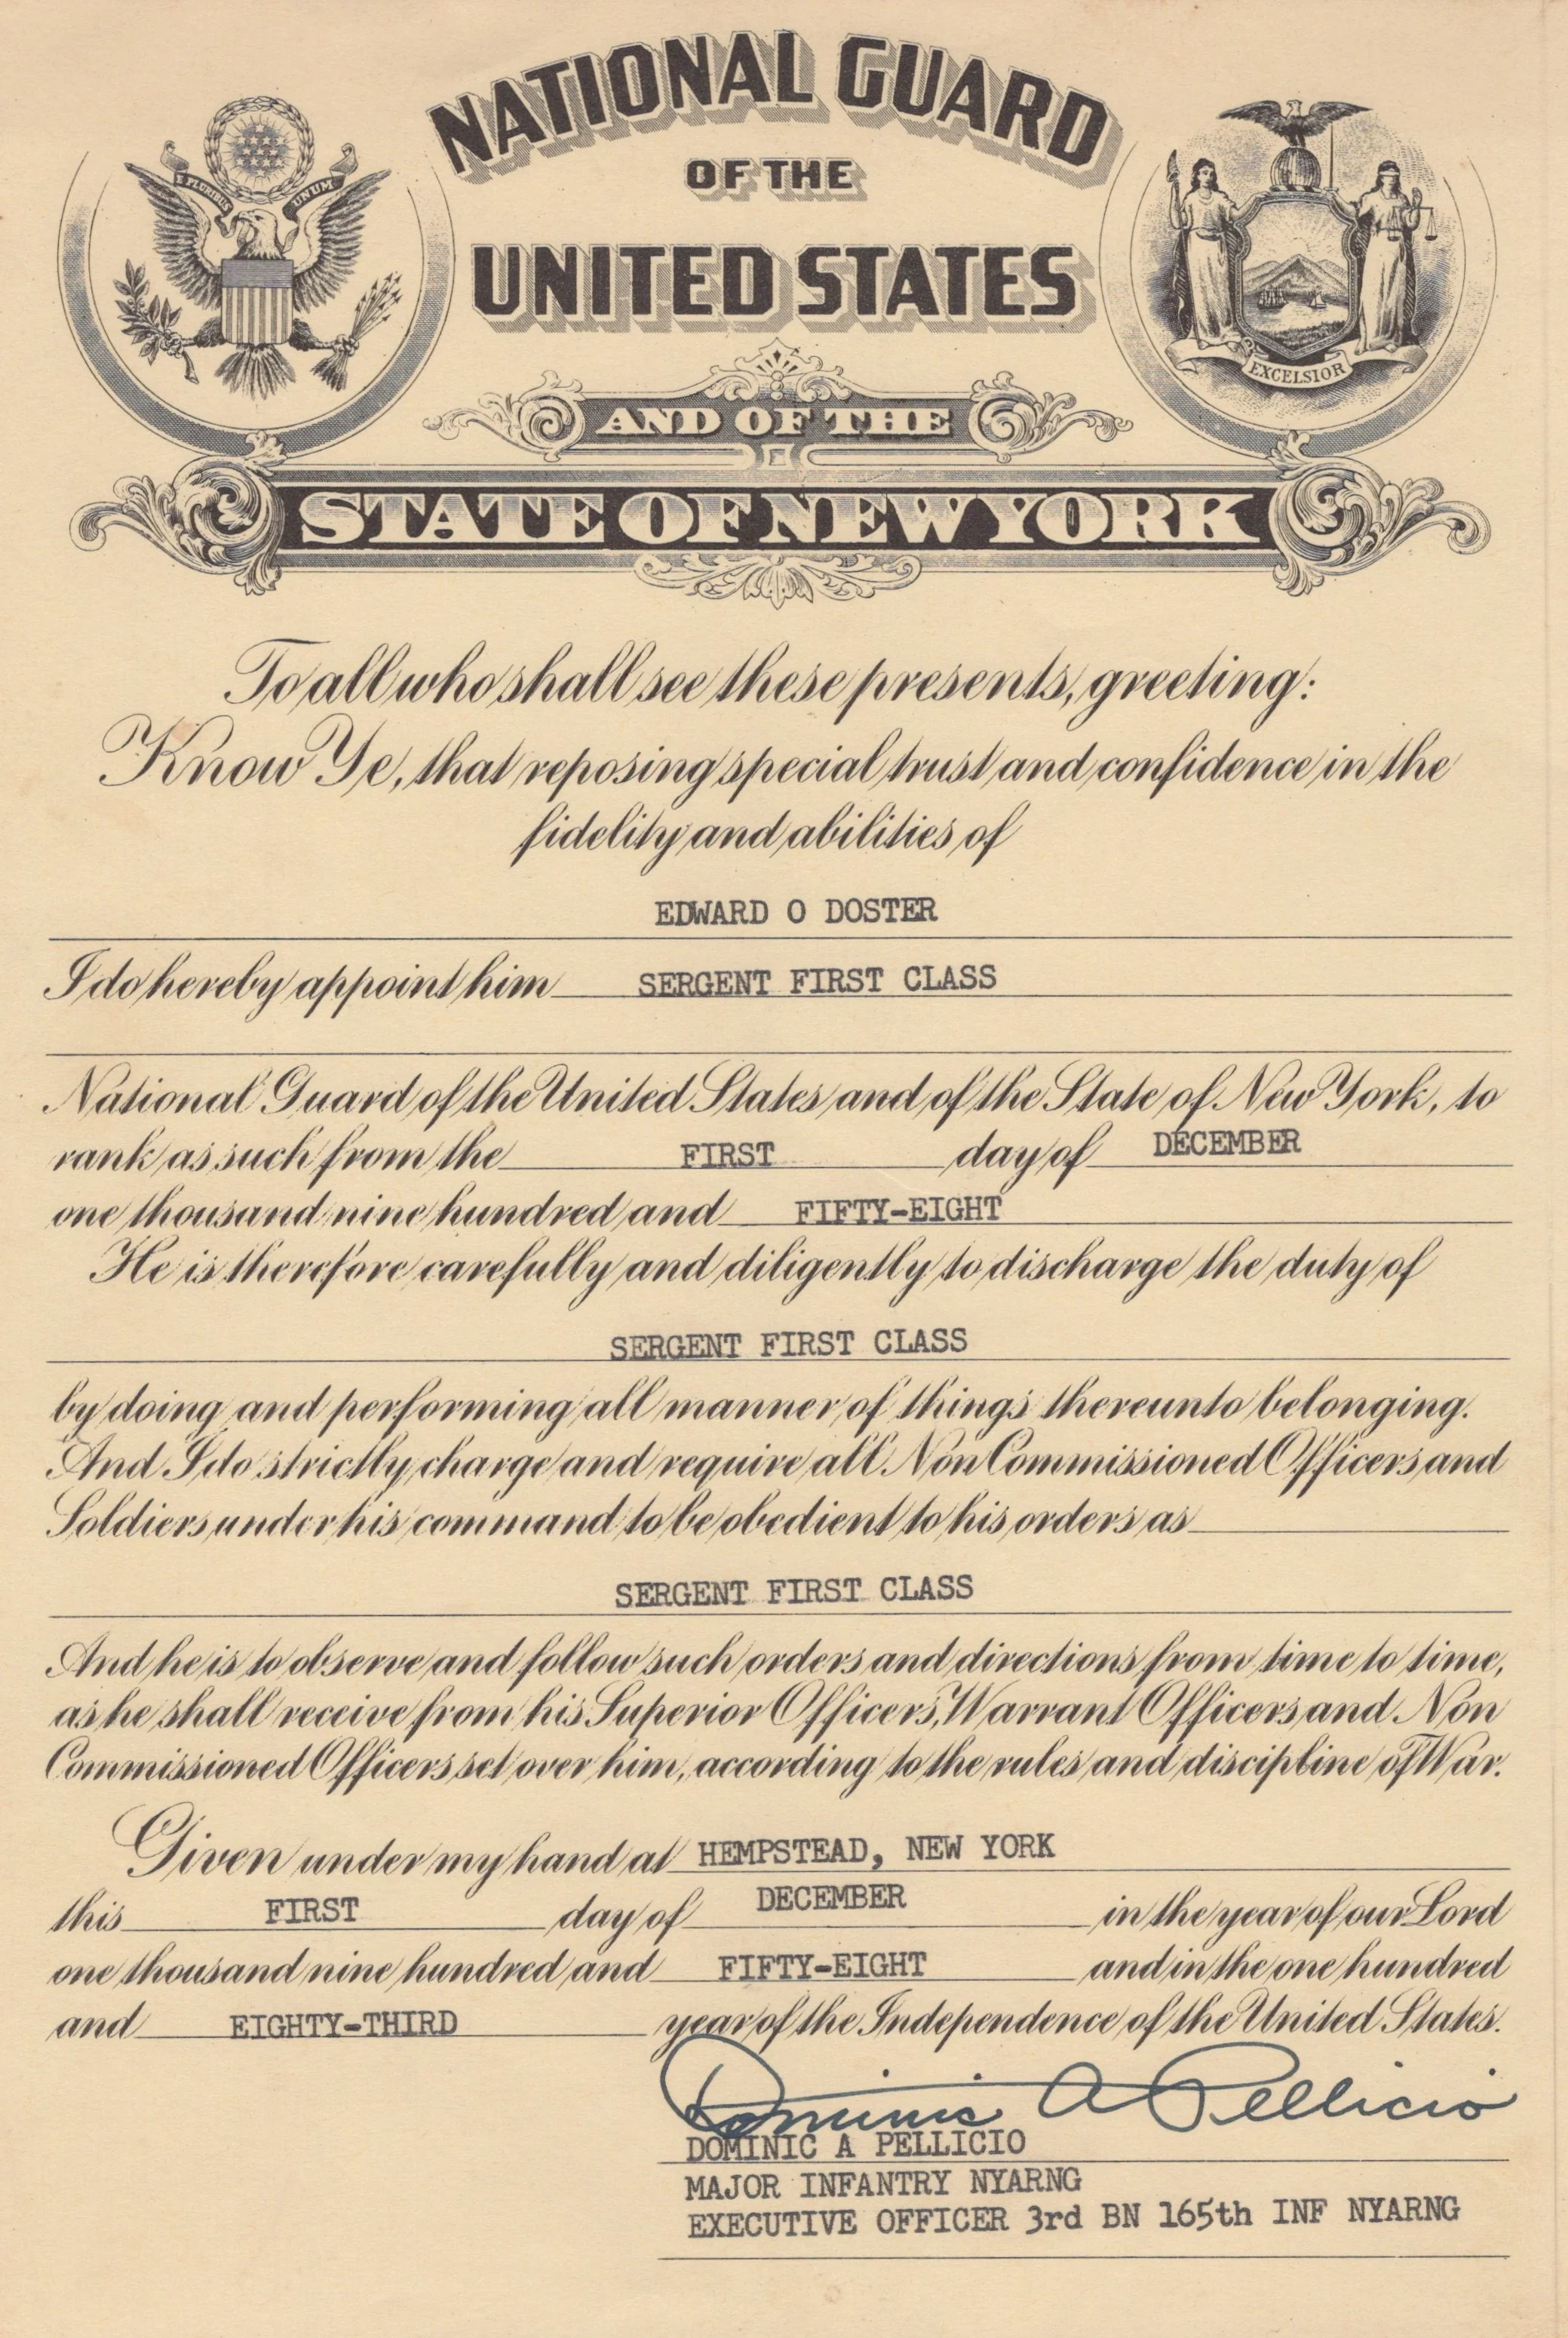 NATIONAL GUARD
OF THE
UNITED STATES
E PLURIBUS UNUM
EXCELSIOR
AND OF THE
STATE OF NEW YORK
To all who shall see these presents, greeting:
Know Ye, that reposing special trust and confidence in the
fidelity and abilities of
EDWARD O DOSTER
I do hereby appoint him SERGENT FIRST CLASS
National Guard of the United States and of the State of New York, to
rank as such from the FIRST day of DECEMBER
one thousand nine hundred and FIFTY-EIGHT
He is therefore carefully and diligently to discharge the duty of
SERGENT FIRST CLASS
by doing and performing all manner of things thereunto belonging.
And I do strictly charge and require all Non Commissioned Officers and
Soldiers under his command to be obedient to his orders as
SERGENT FIRST CLASS
And he is to observe and follow such orders and directions from time to time,
as he shall receive from his Superior Officers, Warrant Officers and Non
Commissioned Officers set over him, according to the rules and discipline of War.
Given under my hand at HEMPSTEAD, NEW YORK
this FIRST day of DECEMBER in the year of our Lord
one thousand nine hundred and FIFTY-EIGHT and in the one hundred
and EIGHTY-THIRD year of the Independence of the United States.
Dominic A Pellicio
DOMINIC A PELLICIO
MAJOR INFANTRY NYARNG
EXECUTIVE OFFICER 3rd BN 165th INF NYARNG